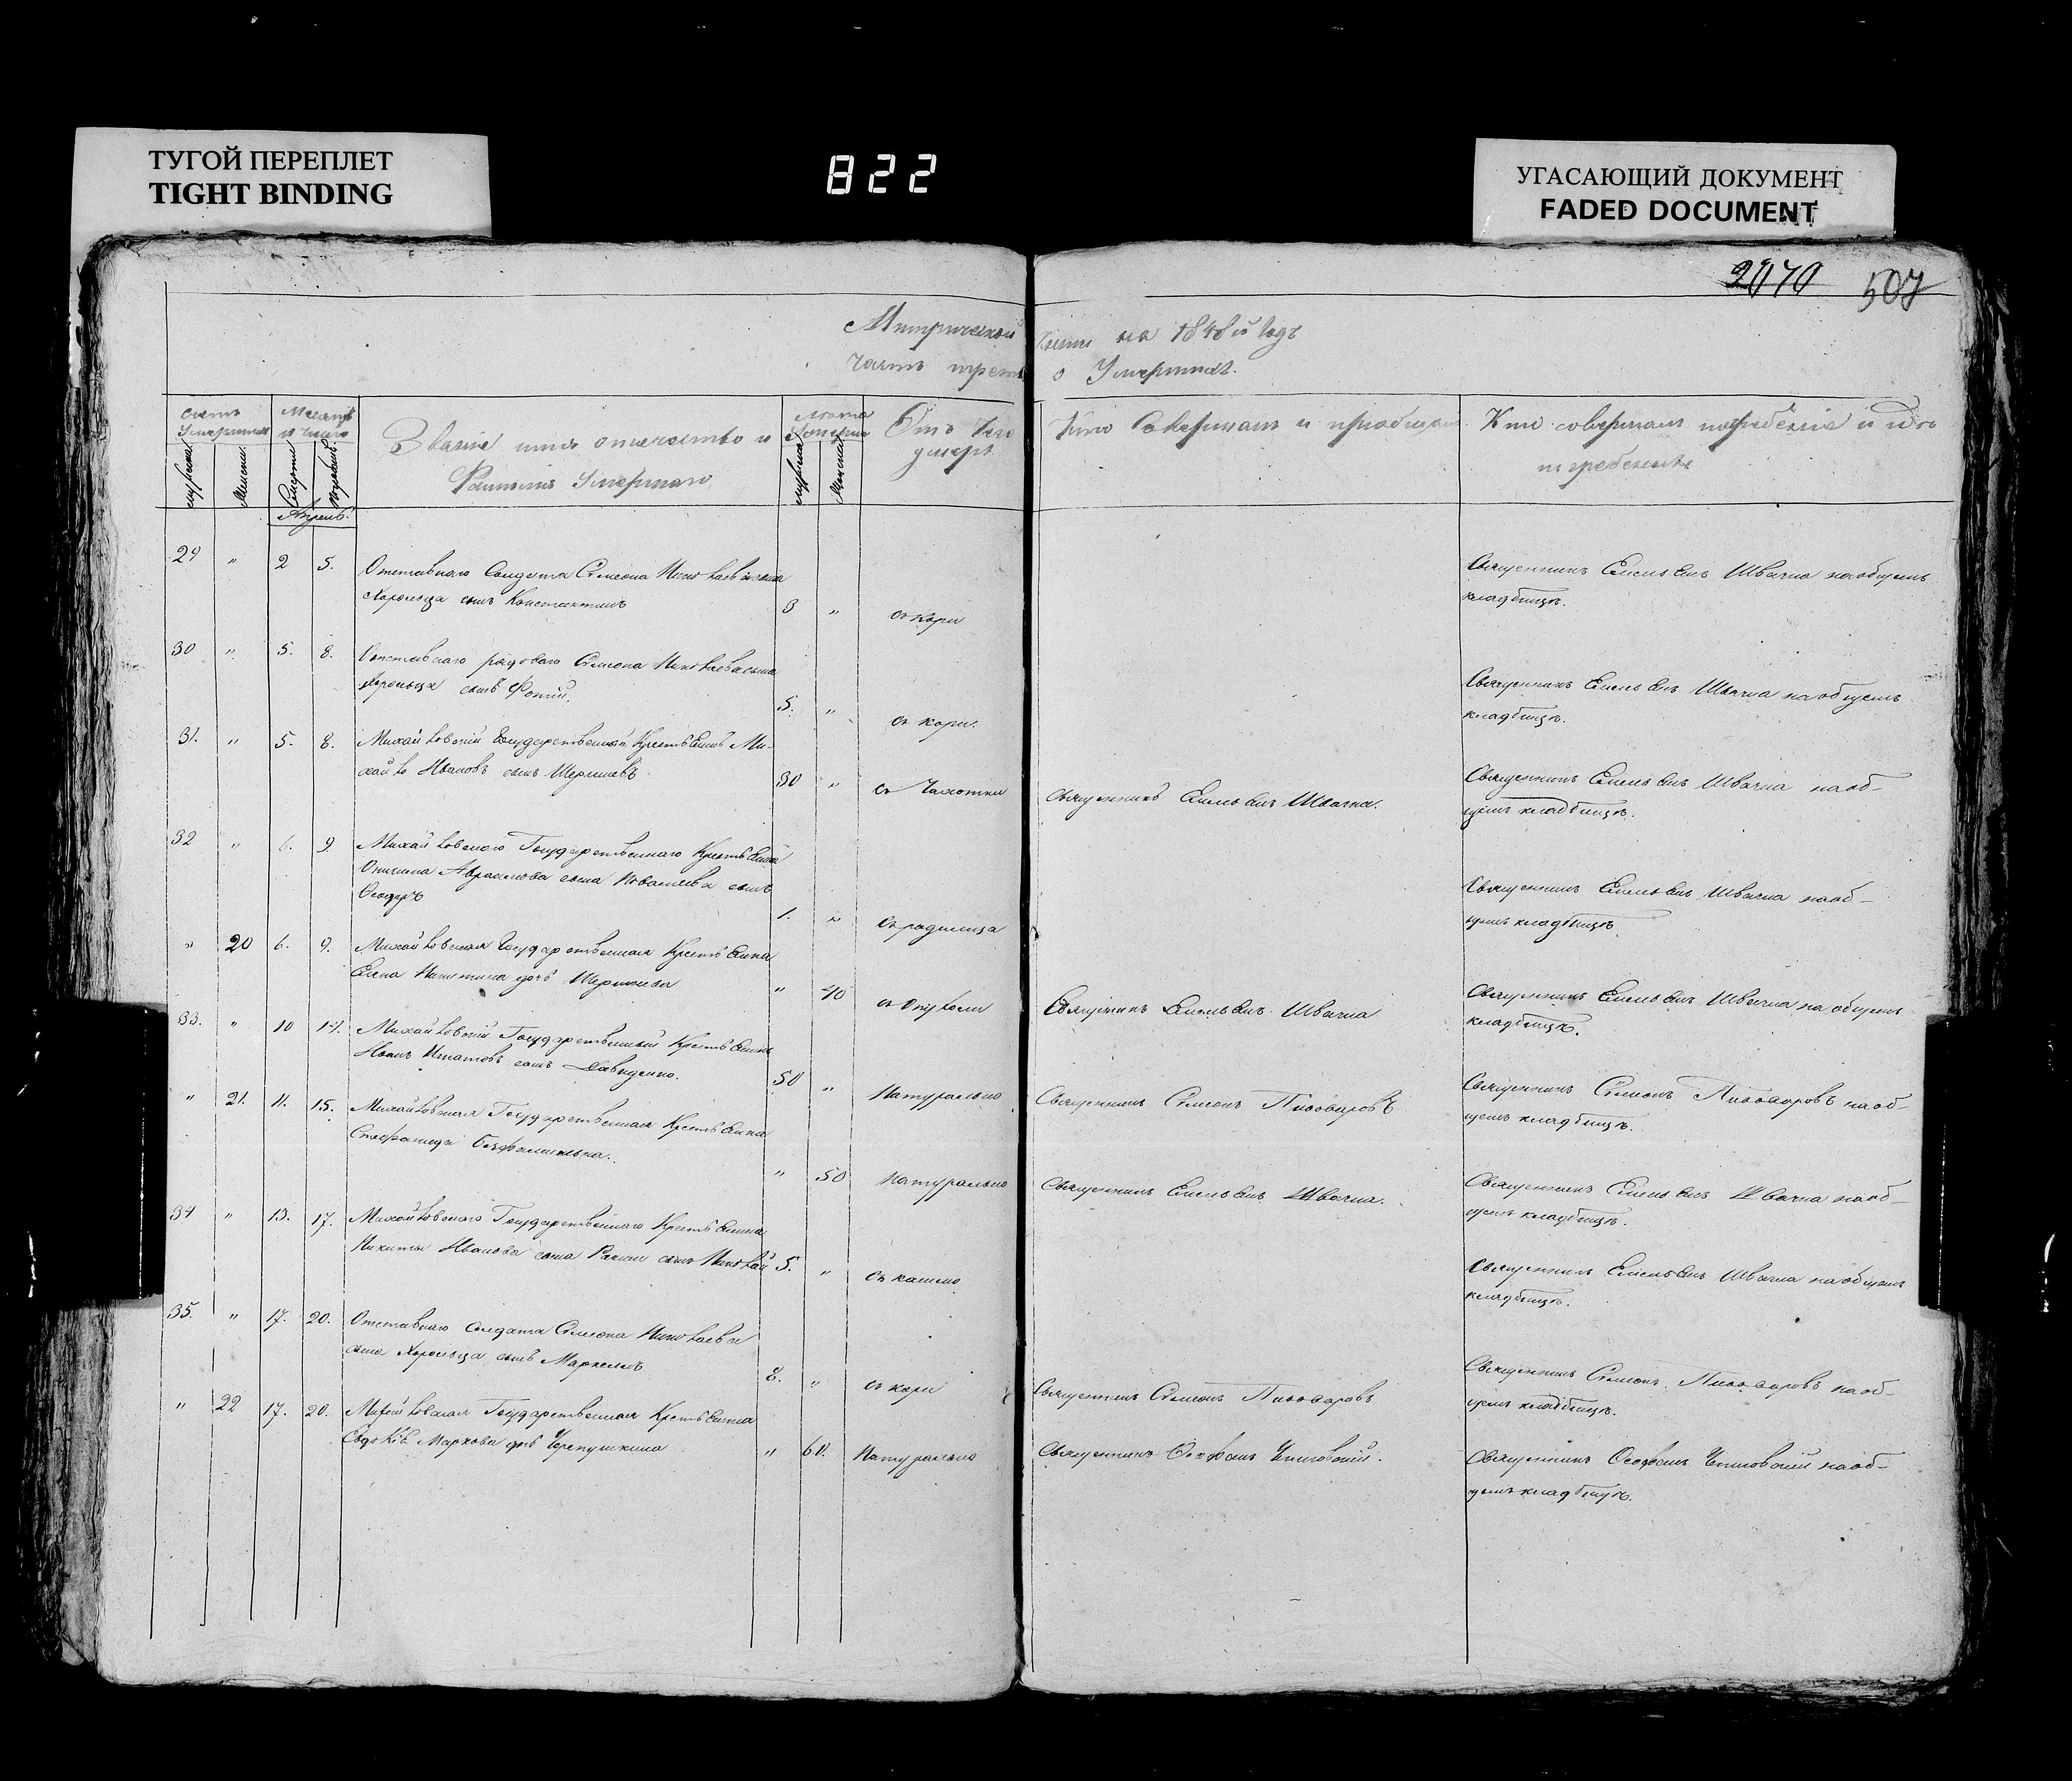 ТУГОЙ ПЕРЕПЛЕТ
TIGHT BINDING
822
УГАСАЮЩИЙ ДОКУМЕНТ
FADED DOCUMENT
2070 507
Метрической
на 1848й годъ
часть трет
о Умершихъ.
Счетъ Умершихъ
Мѣсяцъ и число
Званіе имя отчество и
Фамилія Умершаго
Лѣта Умерше
Отъ чего
умеръ
Кто Совершалъ погребеніе и гдѣ
погребены
Апрель.
29 " 2 5.
Отставнаго Солдата Симеона Николаева сына
Хорольца сынъ Константинъ
3 " Съ кори
Священникъ Емельянъ Швачка на общемъ
кладбищѣ.
30 " 5. 8.
Отставнаго рядоваго Симеона Николаева сына
Хорольца сынъ Фотій.
5. " Съ кори.
Священникъ Емельянъ Швачка на общемъ
кладбищѣ.
31. " 5. 8.
Михайловскій Государственный Крестьянинъ Ми-
хайло Ивановъ сынъ
30 " Съ Чахотки
Священникъ Емельянъ Швачка.
Священникъ Емельянъ Швачка на об-
щемъ кладбищѣ.
32 " 6. 9
Михайловскаго Государственнаго Крестьянина
Аврамова сына Ковалева сынъ
Ѳеодоръ
1. " Съ родимца
Священникъ Емельянъ Швачка на об-
щемъ кладбищѣ.
" 20 6. 9.
Михайловская Государственная Крестьянка
Елена Никитина дочь
" 40 Съ Опухоли
Священникъ Емельянъ Швачка
Священникъ Емельянъ Швачка на общемъ
кладбищѣ.
33. " 10 14.
Михайловскій Государственный Крестьянинъ
Иванъ Игнатовъ сынъ Давиденко.
50 " Натурально
Священникъ Симеонъ Пивоваровъ
Священникъ Симеонъ Пивоваровъ на об-
щемъ кладбищѣ.
" 21. 11. 15.
Михайловская Государственная Крестьянка
Стефанида
" 50 Натурально
Священникъ Емельянъ Швачка.
Священникъ Емельянъ Швачка на об-
щемъ кладбищѣ.
34 " 13. 17.
Михайловскаго Государственнаго Крестьянина
Никиты Иванова сына сынъ Николай
5. " Съ кашлю
Священникъ Емельянъ Швачка на общемъ
кладбищѣ.
35. " 17. 20.
Отставнаго Солдата Симеона Николаева
сына Хорольца сынъ Маркелъ
8. " Съ кори
Священникъ Симеонъ Пивоваровъ
Священникъ Симеонъ Пивоваровъ на об-
щемъ кладбищѣ.
" 22 17. 20.
Михайловская Государственная Крестьянка
Евдокія Маркова дочь Черепушкина
" 60. Натурально
Священникъ Ѳеофанъ
Священникъ Ѳеофанъ на об-
щемъ кладбищѣ.